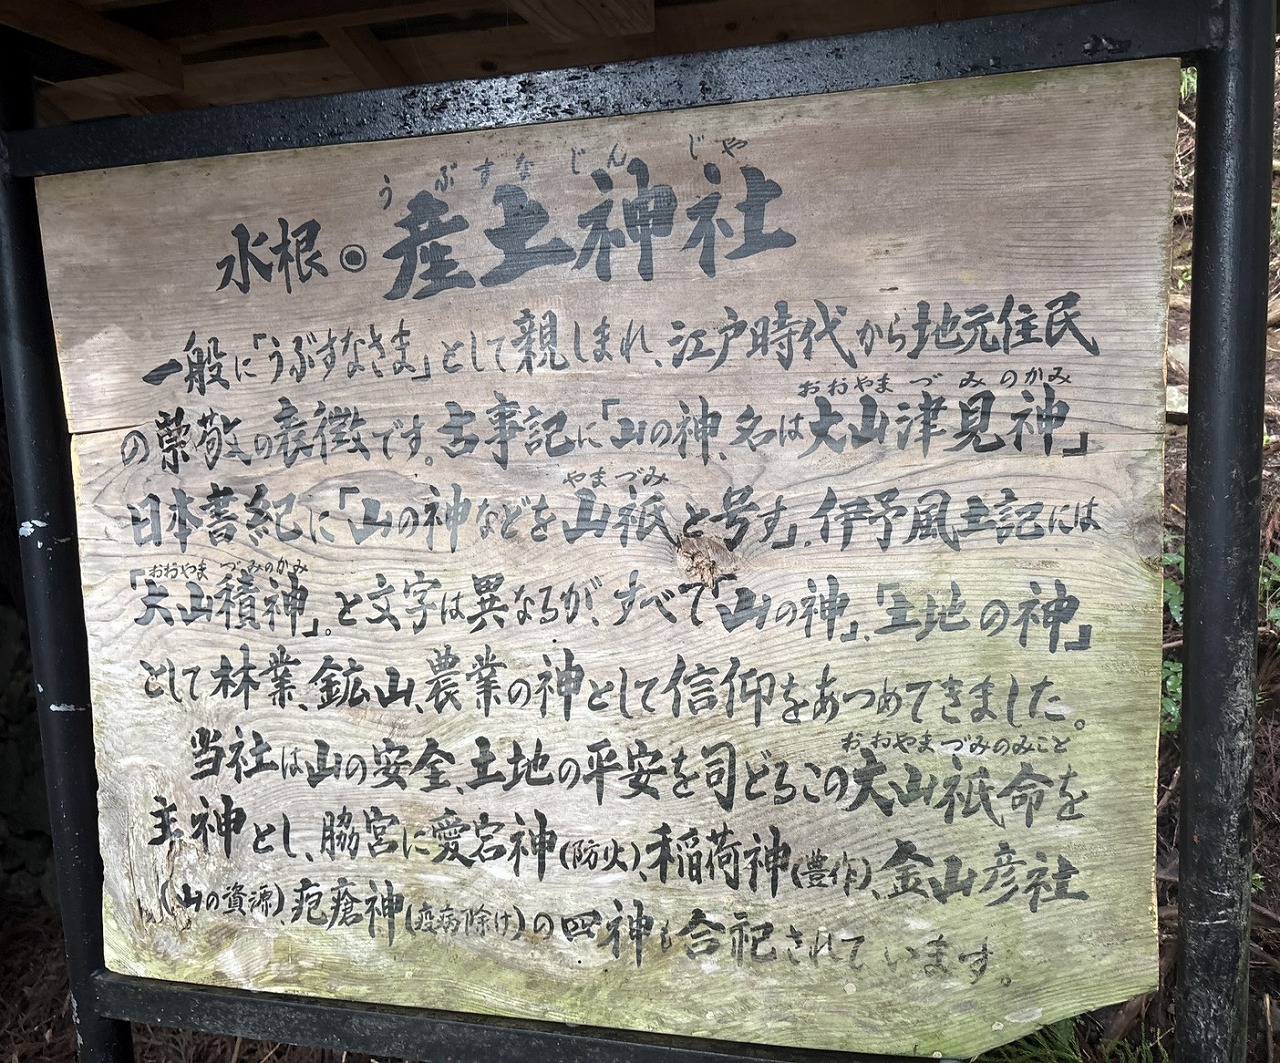 うぶすなじんじゃ
水根◎産土神社
一般に「うぶすなさま」として親しまれ、江戸時代から地元住民
おおやまづみのかみ
の崇敬の表徴です。古事記に「山の神、名は大山津見神」
やまづみ
日本書紀に「山の神などを山祇と号す」。伊予風土記には
おおやまづみのかみ
「大山積神」。と文字は異なるが、すべて「山の神」、「土地の神」
として林業、鉱山、農業の神として信仰をあつめてきました。
おおやまづみのみこと
当社は山の安全、土地の平安を司どるこの大山祇命を
主神とし、脇宮に愛宕神(防火)、稲荷神(豊作)、金山彦社
(山の資源)、疱瘡神(疫病除け)の四神も合祀されています。